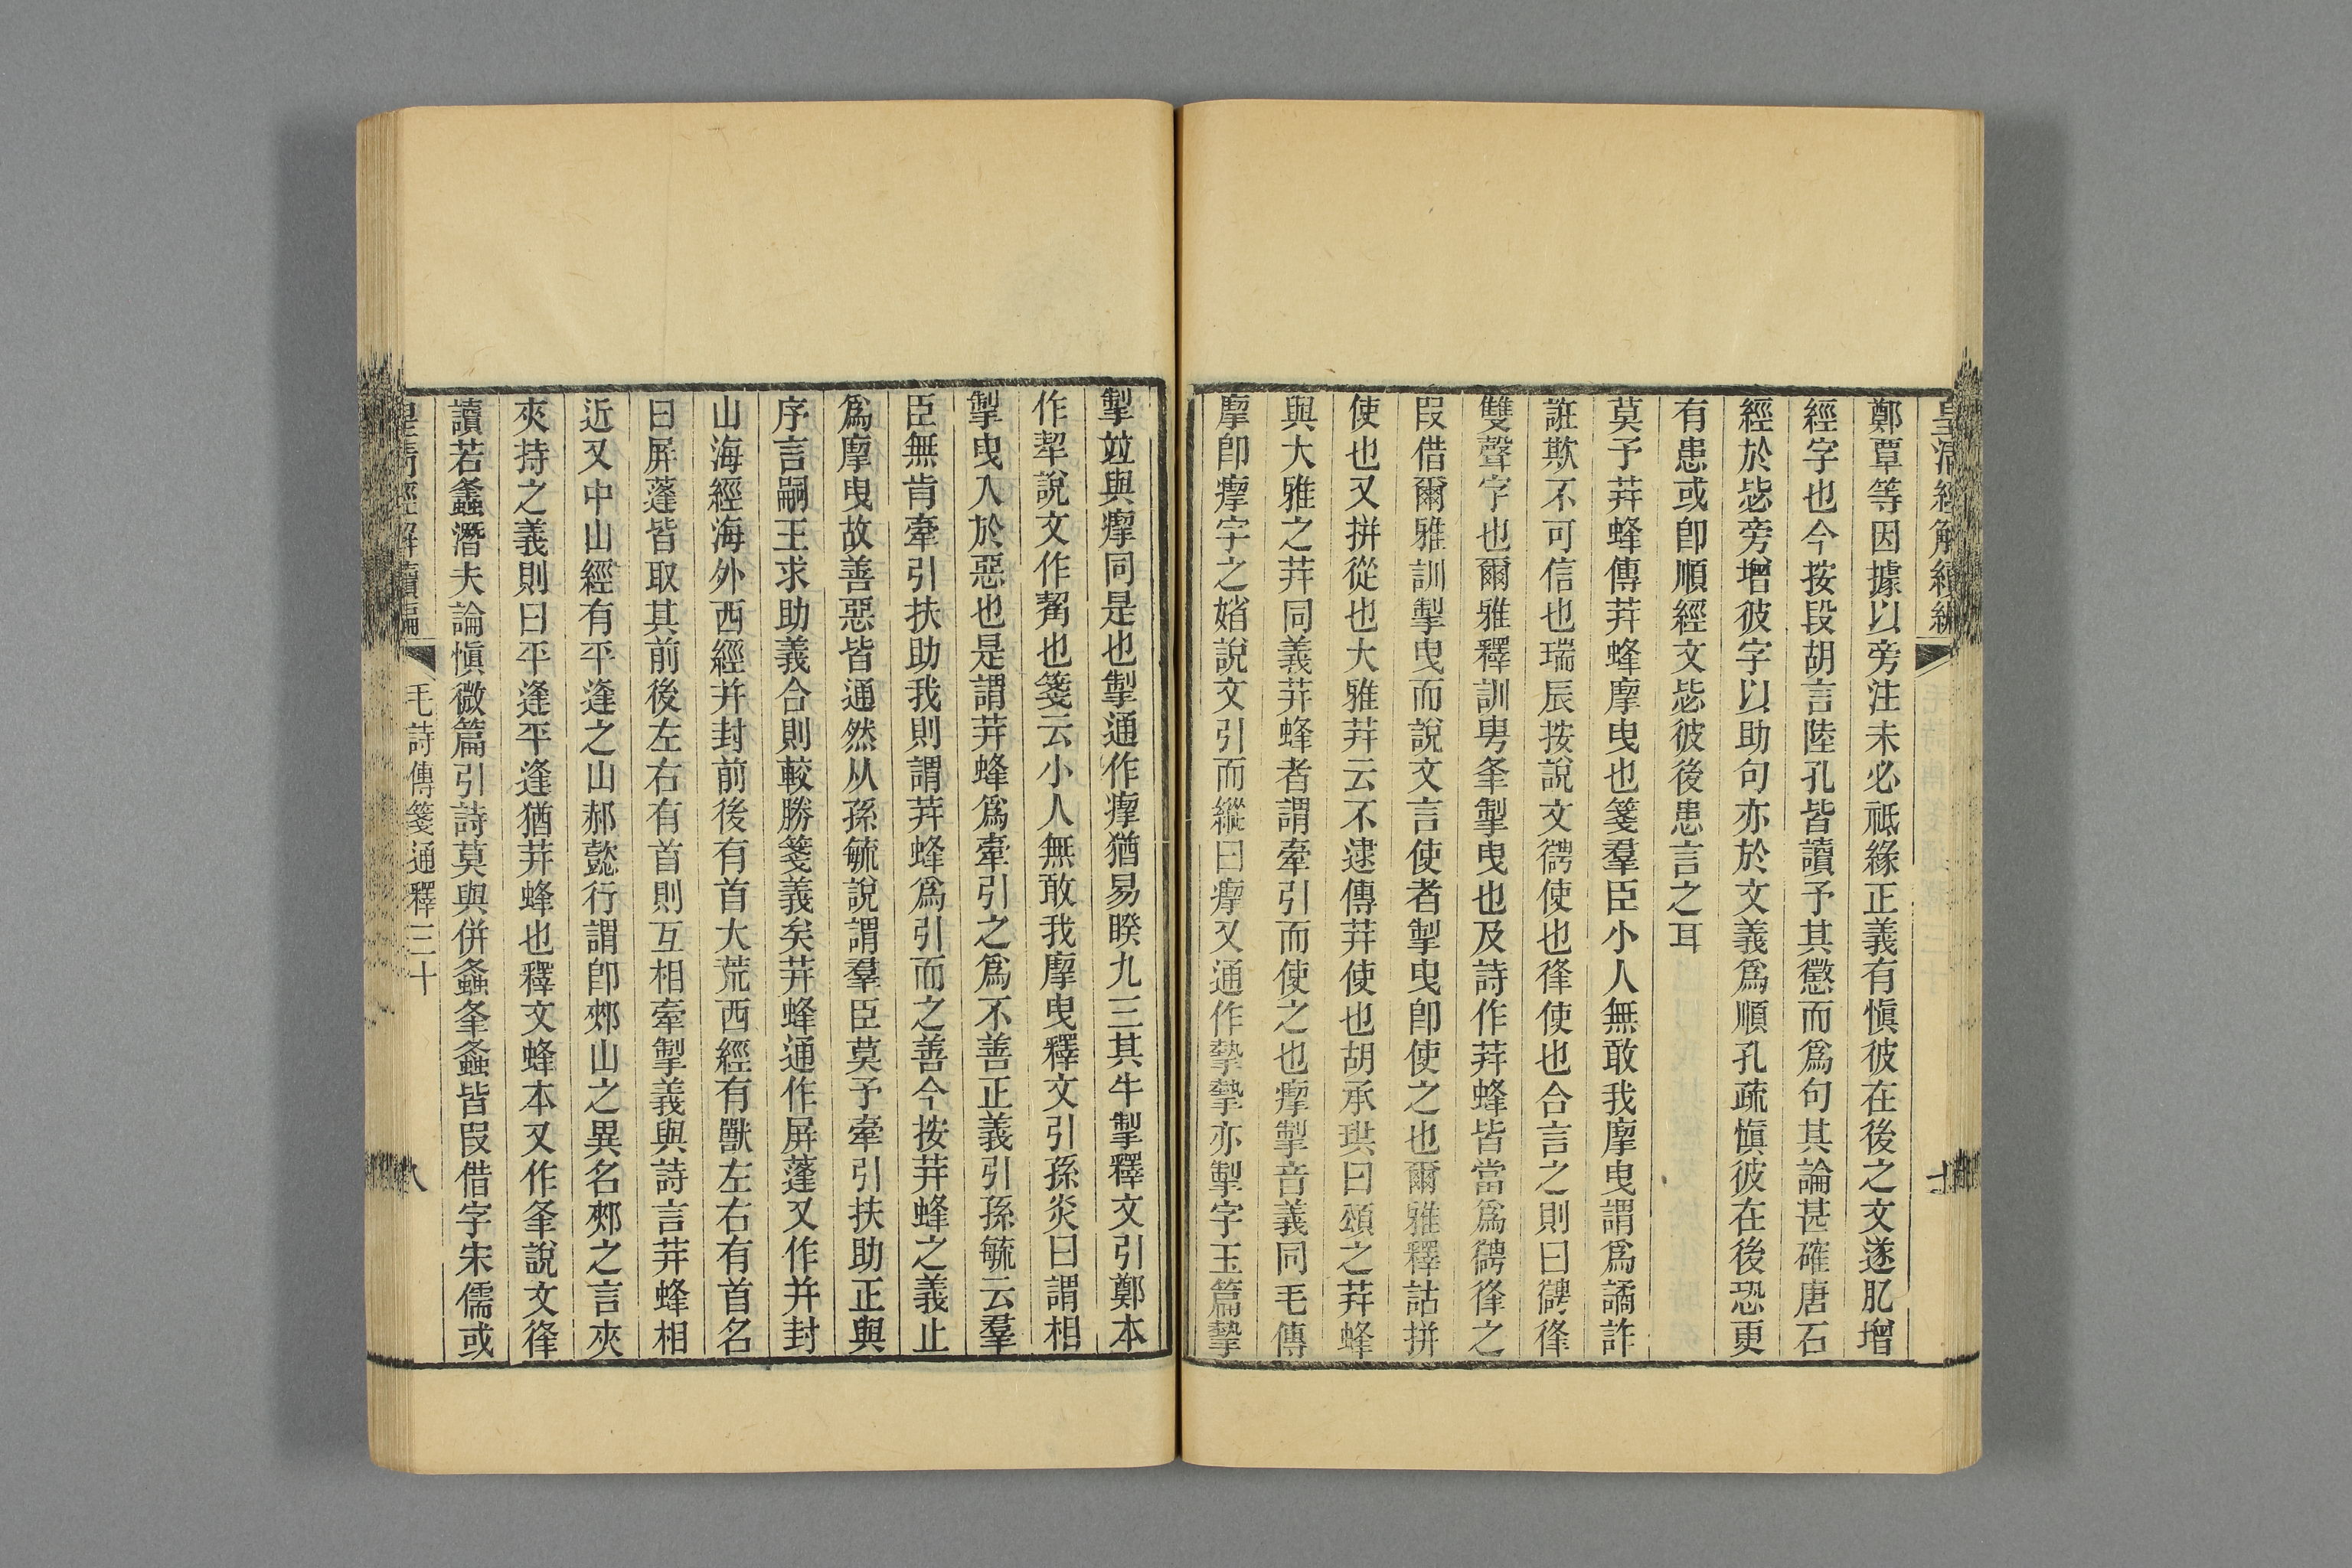 皇清經解續編
鄭覃等因據以旁注未必祗緣正義有愼彼在後之文遂肊增
經字也今按段胡言陸孔皆讀予其懲而爲句其論甚確唐石
經於毖旁增彼字以助句亦於文義爲順孔疏愼彼在後恐更
有患或卽順經文毖彼後患言之耳
莫予荓蜂傳荓蜂摩曳也箋羣臣小人無敢我摩曳謂爲譎詐
誑欺不可信也瑞辰按說文德使也夆使也合言之則曰德夆
雙聲字也爾雅釋訓甹夆掣曳也及詩作荓蜂皆當爲德夆之
叚借爾雅訓掣曳而說文言使者掣曳卽使之也爾雅釋詁拼
使也又拼從也大雅荓云不逮傳荓使也胡承珙曰頌之荓蜂
與大雅之荓同義荓蜂者謂牽引而使之也瘳掣音義同毛傳
摩卽瘳字之媘說文引而縱曰瘳又通作摯摯亦掣字玉篇摯
掣竝與瘳同是也掣通作瘳猶易睽九三其牛掣釋文引鄭本
作犁說文作觢也箋云小人無敢我摩曳釋文引孫炎曰謂相
掣曳入於惡也是謂荓蜂爲牽引之爲不善正義引孫毓云羣
臣無肯牽引扶助我則謂荓蜂爲引而之善今按荓蜂之義止
爲摩曳故善惡皆通然从孫毓說謂羣臣莫予牽引扶助正與
序言嗣王求助義合則較勝箋義矣荓蜂通作屏蓬又作并封
山海經海外西經并封前後有首大荒西經有獸左右有首名
曰屏蓬皆取其前後左右有首則互相牽掣義與詩言荓蜂相
近又中山經有平逢之山郝懿行謂卽郟山之異名郟之言夾
夾持之義則曰平逢平逢猶荓蜂也釋文蜂本又作夆說文夆
讀若螽潛夫論愼微篇引詩莫與併螽夆螽皆叚借字朱儒或
皇清經解續編 毛詩傳箋通釋三十 八